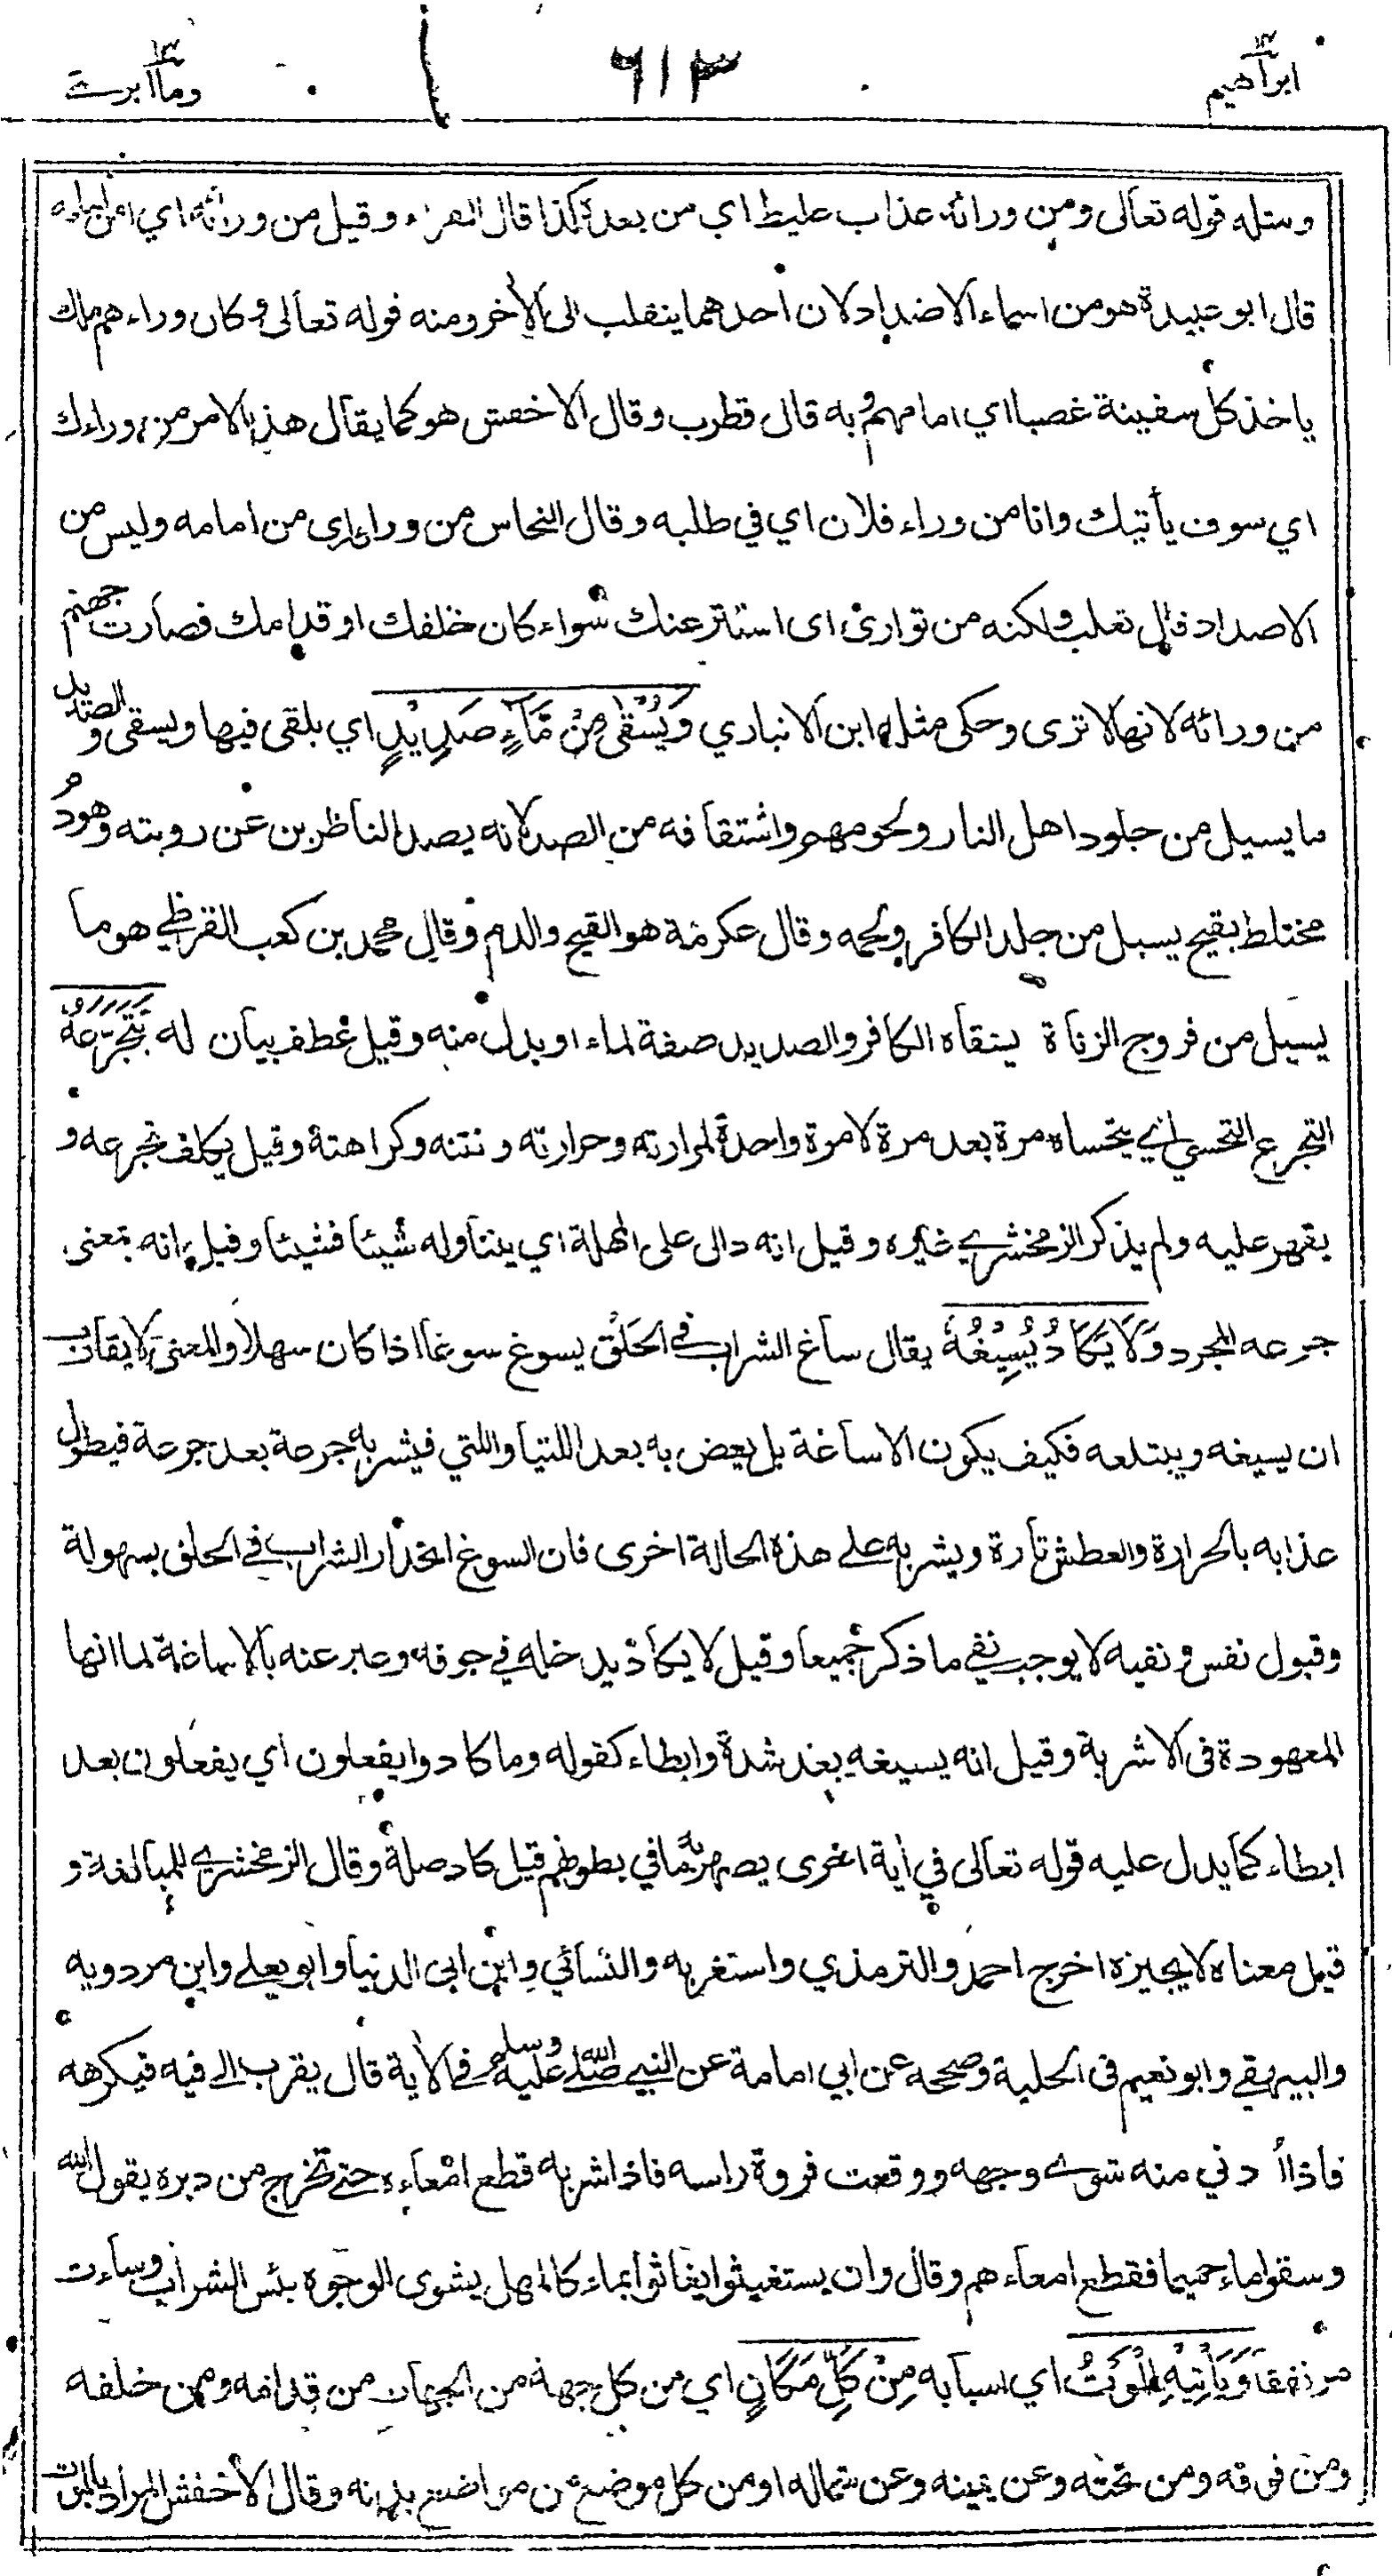 ابراهيم ١٤
٦١٣
وما ابرئ ١٣
ومثله قوله تعالى ومن ورائه عذاب غليظ اي من بعدة كذا قال الفراء وقيل من ورائه اي
قال ابو عبيدة هو من اسماء الاضداد لان احدهما ينقلب الى الأخر ومنه قوله تعالى وكان وراءهم ملك
ياخذ كل سفينة غصبا اي امامهم وبه قال قطرب وقال الاخفش هو كما يقال هذا الامر من وراءك
اي سوف يأتيك وانا من وراء فلان اي في طلبه وقال النحاس من ورائه اى من امامه وليس من
الاضداد قال ثعلب ولكنه من توارى اى استتر عنك سواء كان خلفك او قدامك فصارت جهنم
من ورائه لانها لا ترى وحكى مثله ابن الانباري وَيُسْقَى مِنْ مَّآءٍ صَدِيْدٍ اي يلقى فيها ويسقى والصديد
ما يسيل من جلود اهل النار ولحومهم واشتقاقه من الصد لانه يصد الناظرين عن رويته وهو دم
مختلط بقيح يسيل من جلد الكافر ولحمه وقال عكرمة هو القيح والدم وقال محمد بن كعب القرظي هو ما
يسيل من فروج الزناة يسقاه الكافر والصديد صفة لماء او بدل منه وقيل عطف بيان له يَتَجَرَّعُهُ
التجرع التحسي اي يتحساه مرة بعد مرة لا مرة واحدة لمرارته وحرارته ونتنه وكراهته وقيل يكلف تجرعه و
يقهر عليه ولم يذكر الزمخشري غيره وقيل انه دال على المهلة اي يتناوله شيئا فشيئا وقيل انه بمعنى
جرعه المجرد وَلَا يَكَادُ يُسِيْغُهُ يقال ساغ الشراب في الحلق يسوغ سوغا اذا كان سهلا والمعنى لا يقارب
ان يسيغه ويبتلعه فكيف يكون الاساغة بل يغص به بعد اللتيا واللتي فيشربه جرعة بعد جرعة فيطول
عذابه بالحرارة والعطش تارة ويشربه على هذه الحالة اخرى فان السوغ انحدار الشراب في الحلق بسهولة
وقبول نفس ونفيه لا يوجب نفي ما ذكر جميعا وقيل لا يكاد يدخله في جوفه وعبر عنه بالاساغة لما انها
المعهودة فى الاشربة وقيل انه يسيغه بعد شدة وابطاء كقوله وما كادوا يفعلون اي يفعلون بعد
ابطاء كما يدل عليه قوله تعالى في أية اخرى يصهر به ما في بطونهم قيل كاد صلة وقال الزمخشري للمبالغة و
قيل معناه لا يجيزه اخرج احمد والترمذي واستغربه والنسائي وابن ابى الدنيا وابو يعلى وابن مردويه
والبيهقي وابو نعيم فى الحلية وصححه عن ابي امامة عن النبي صلى الله عليه وسلم في الأية قال يقرب الى فيه فيكرهه
فاذا دني منه شوى وجهه ووقعت فروة راسه فاذا شربه قطع امعاءه حتى تخرج من دبره يقول الله
وسقوا ماء حميما فقطع امعاءهم وقال وان يستغيثوا يغاثوا بماء كالمهل يشوى الوجوه بئس الشراب وساءت
مرتفقا وَيَأْتِيْهِ الْمَوْتُ اي اسبابه مِنْ كُلِّ مَكَانٍ اي من كل جهة من الجهات من قدامه ومن خلفه
ومن فوقه ومن تحته وعن يمينه وعن شماله او من كل موضع من مواضع بدنه وقال الأخفش المراد بالموت